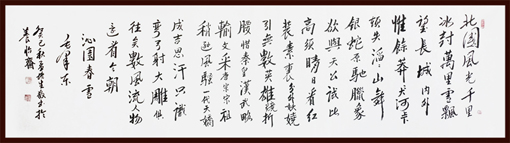 北国风光千里
冰封万里雪飘
望长城内外
惟馀莽莽大河上下
顿失滔滔山舞
银蛇原驰腊象
欲与天公试比
高须晴日看红
装素裹分外妖娆
引无数英雄竞折
腰惜秦皇汉武略
输文采唐宗宋祖
稍逊风骚一代天骄
成吉思汗只识
弯弓射大雕俱
往矣数风流人物
还看今朝
沁园春雪
毛泽东
癸巳秋